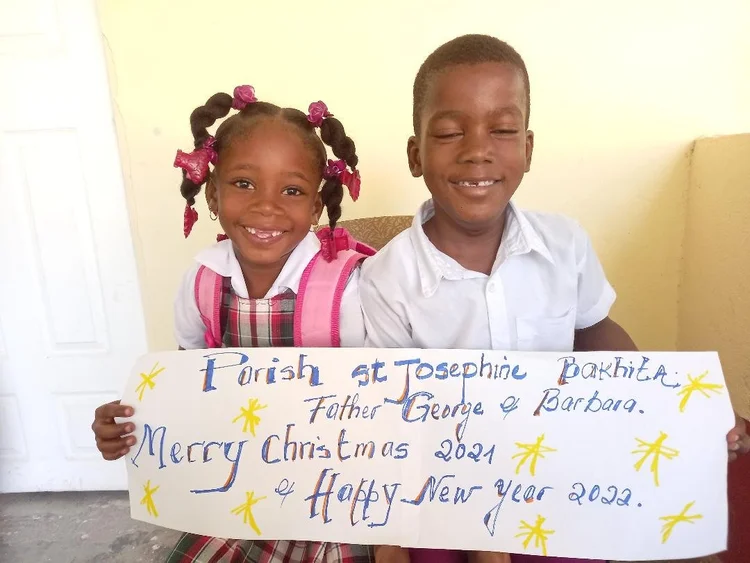 Parish st Josephine Bakhita.
Father George & Barbara.
Merry Christmas 2021
& Happy New Year 2022.